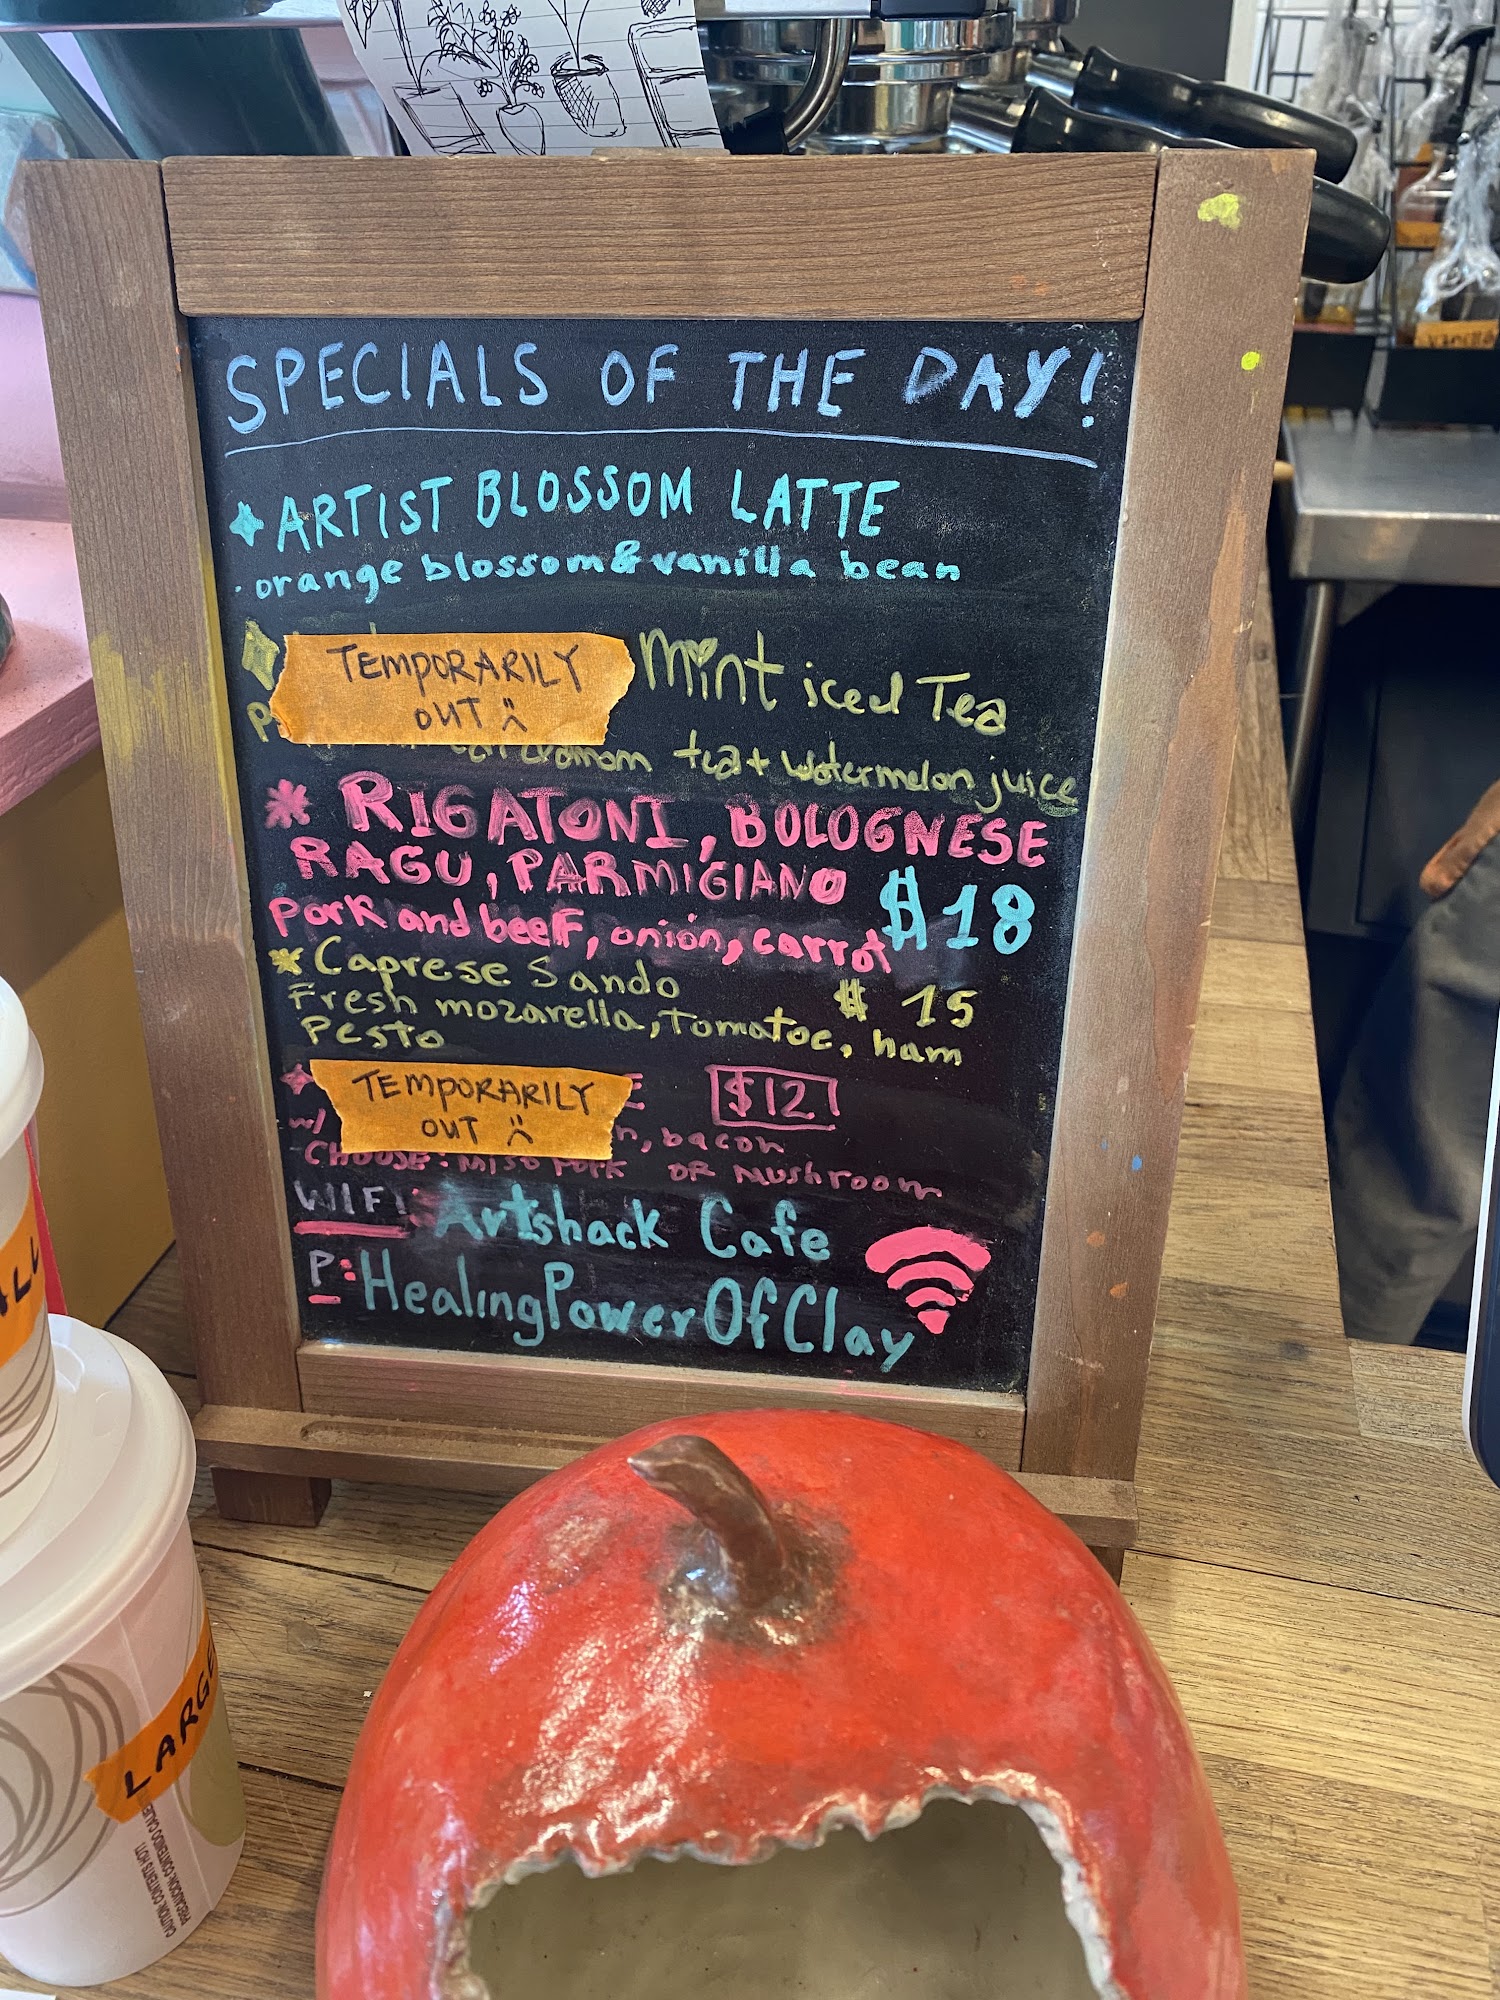 SPECIALS OF THE DAY!
ARTIST BLOSSOM LATTE
orange blossom & vanilla bean
TEMPORARILY
OUT
Mint iced Tea
tea + watermelon juice
RIGATONI, BOLOGNESE
RAGU, PARMIGIANO
$18
pork and beef, onion, carrot
Caprese Sando
$15
Fresh mozarella, Tomatoe, ham
Pesto
TEMPORARILY
OUT
$12
w/
bacon
CHOOSE: MISO PORK OR MUSHROOM
WIFI: Artshack Cafe
P: HealingPowerOfClay
LARGE